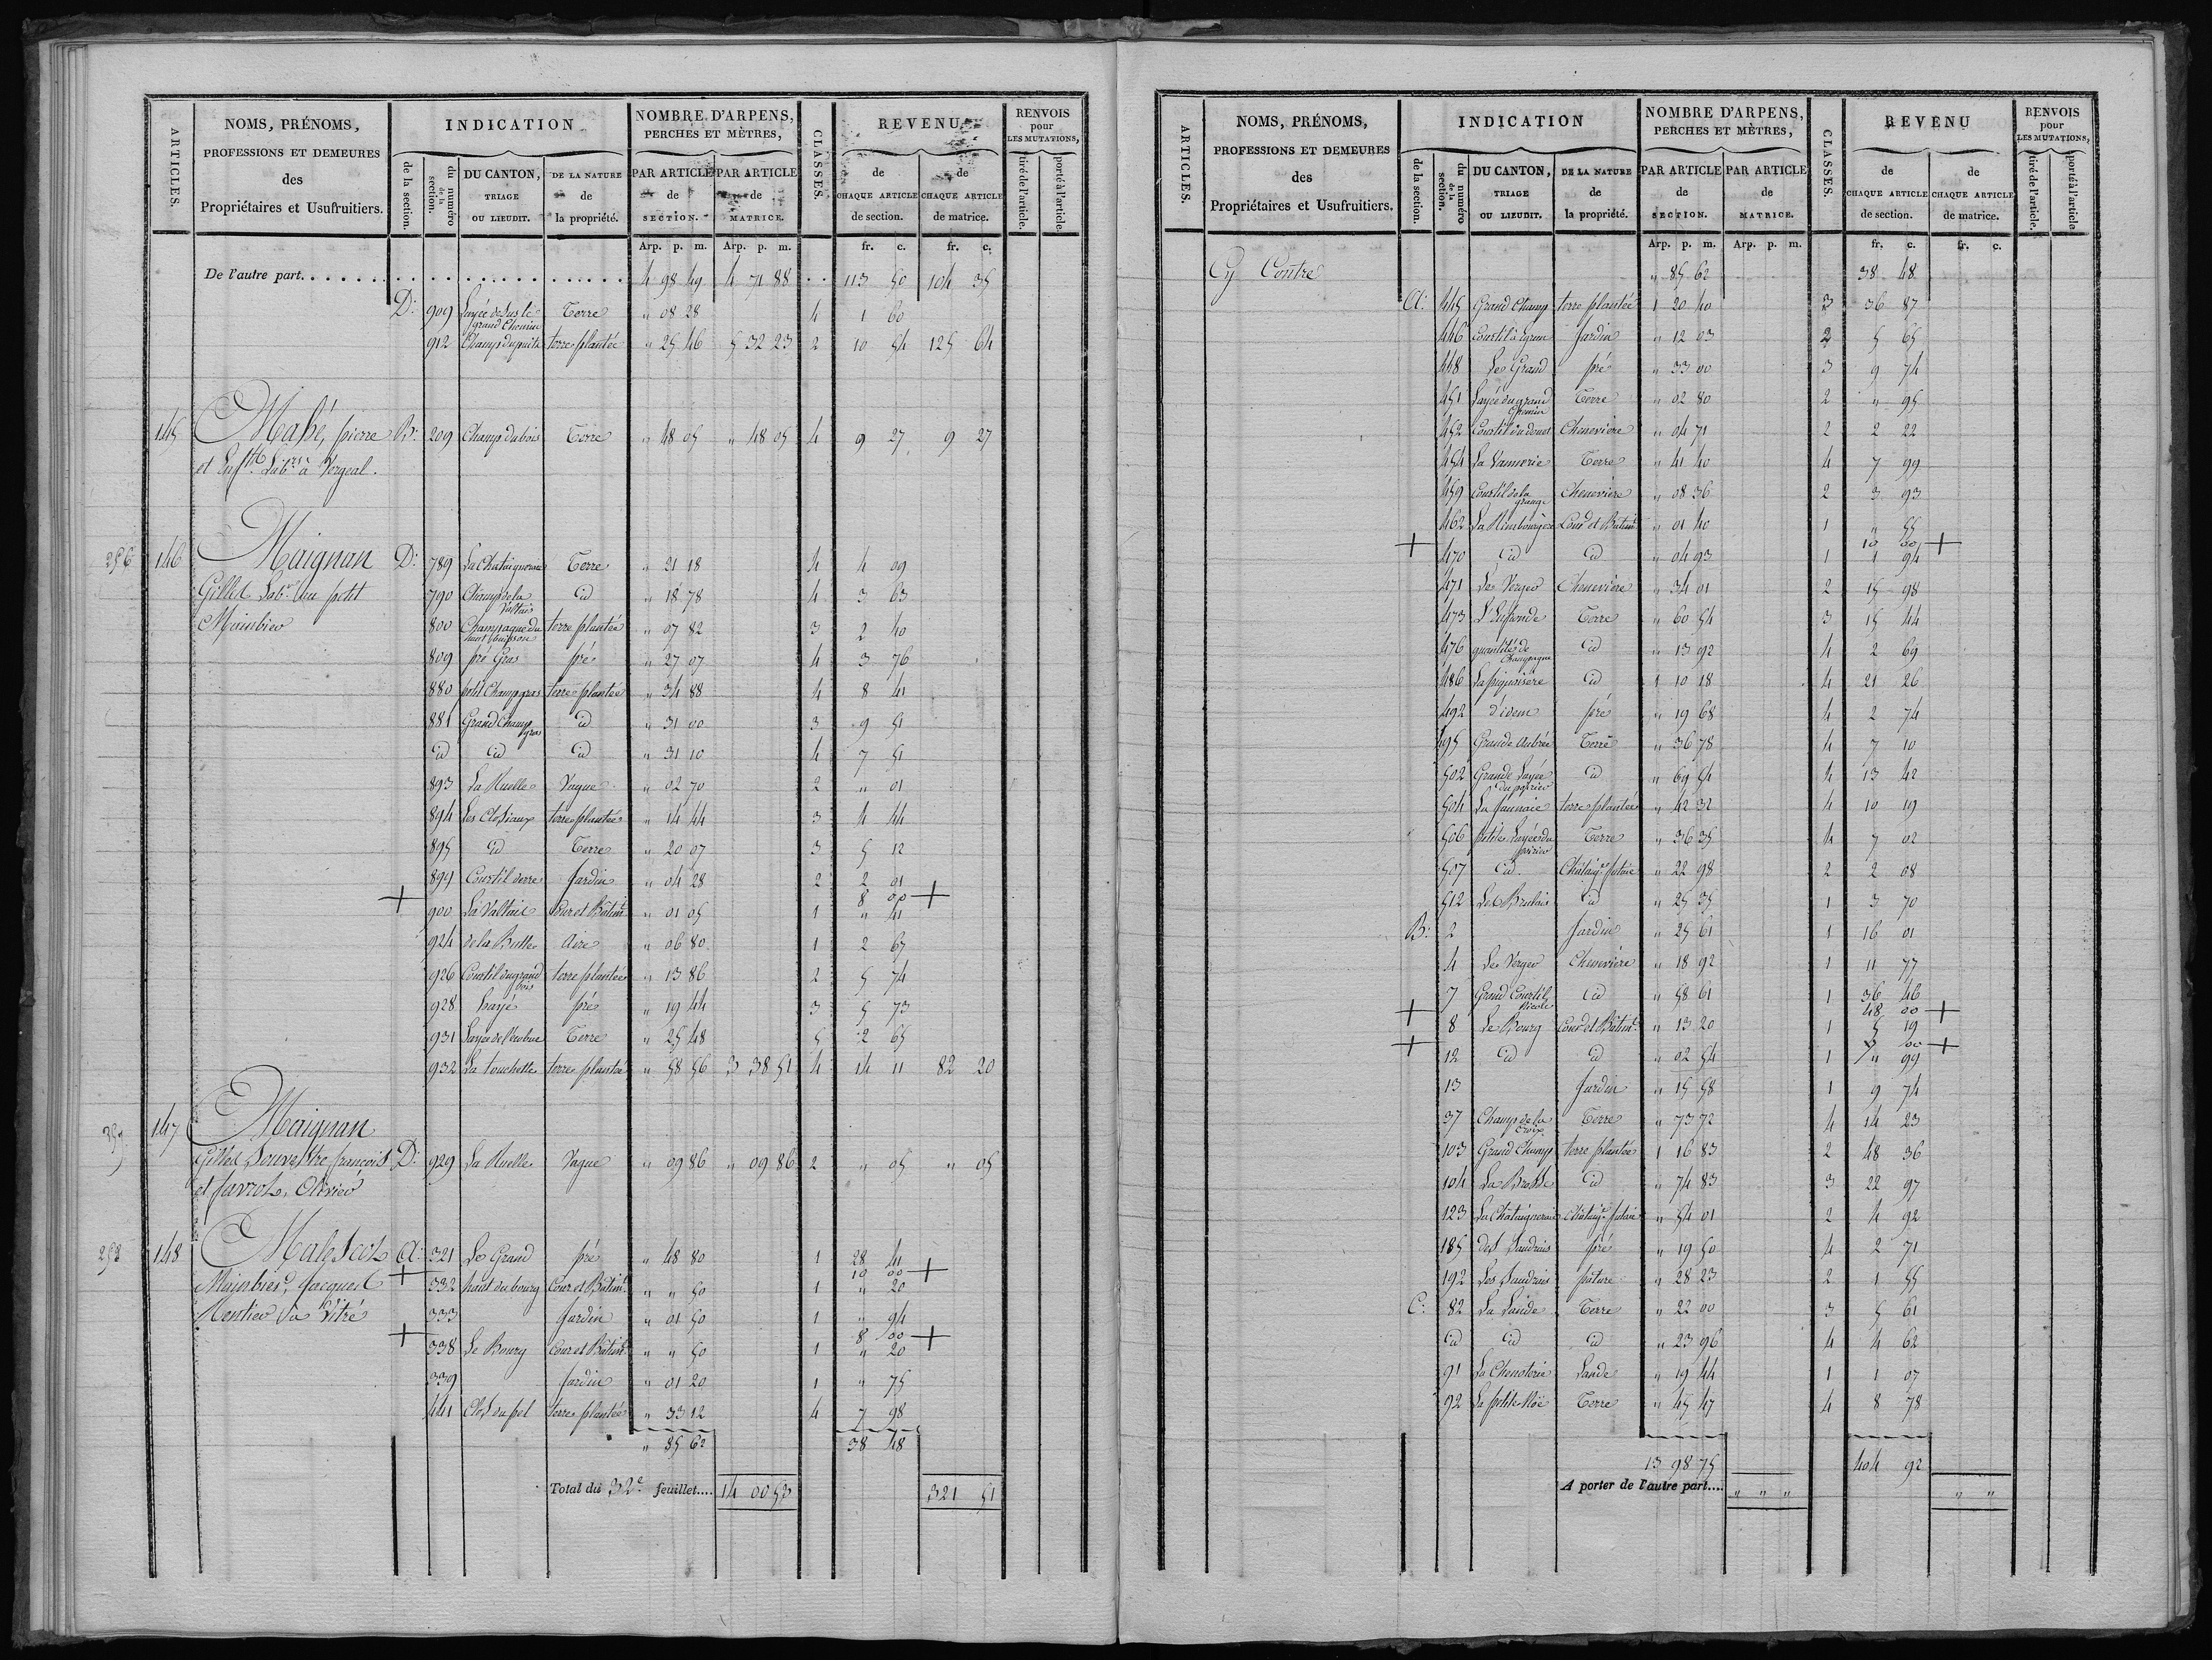 ARTICLES.
NOMS, PRÉNOMS,
PROFESSIONS ET DEMEURES
des
Propriétaires et Usufruitiers.
INDICATION
de la section.
du numéro de la section.
DU CANTON,
TRIAGE
OU LIEUDIT.
DE LA NATURE
de
la propriété.
NOMBRE D'ARPENS,
PERCHES ET MÈTRES,
PAR ARTICLE
de
SECTION.
PAR ARTICLE
de
MATRICE.
CLASSES.
REVENU
de
CHAQUE ARTICLE
de section.
de
CHAQUE ARTICLE
de matrice.
RENVOIS
pour
LES MUTATIONS,
tiré de l'article.
porté à l'article
Arp. p. m. Arp. p. m. fr. c. fr. c.
De l'autre part . . . . 4 98 49 4 71 88 113 50 104 35
D: 909 Layée dessus le grand Chemin Terre " 08 28 4 1 60
912 Champ du puits terre plantée " 25 46 5 32 23 2 10 54 125 64
145 Mahé, pierre B: 209 Champ du bois Terre " 48 05 " 48 05 4 9 27 9 27
et Enfts Labrs à Vergeal.
256 146 Maignan D: 789 La Chataigneraie Terre " 21 18 4 4 09
Gilles Labr. au petit 790 Champ de la Valtais id " 18 78 4 3 63
Mainbier 800 Champagne du haut buisson terre plantée " 07 82 3 2 40
809 pré Gras pré " 27 07 4 3 76
880 petit Champ gras terre plantée " 34 88 4 8 41
881 Grand Champ gras id " 31 00 3 9 51
id id id " 31 10 4 7 51
893 La Ruelle Vague " 02 70 2 " 01
894 Les Closiaux terre plantée " 14 44 3 4 44
895 id Terre " 20 07 3 5 12
899 Courtil derre Jardin " 04 28 2 2 01
+ 8 00 +
900 La Valtais Cour et Bâtimt " 01 05 1 " 41
924 de la Butte Aire " 06 80 1 2 67
926 Courtil du grand bois terre plantée " 13 86 2 5 74
928 hayé pré " 19 44 3 5 73
931 Layée de l'ecobue Terre " 25 48 5 2 65
932 La touchette terre plantée " 58 56 3 38 51 4 14 11 82 20
147 Maignan
Gilles Souvestre françois D: 929 La Ruelle Vague " 09 86 " 09 86 2 " 05 " 05
et Javrot, Olivier
258 148 Malescot A: 321 Le Grand pré " 48 80 1 28 41
+ 10 00 +
Mainbier, Jacques 332 haut du bourg Cour et Bâtimt " " 50 1 " 20
Mentier à Vitré 333 Jardin " 01 50 1 " 94
+ 8 00 +
338 Le Bourg Cour et Bâtimt " " 50 1 " 20
339 Jardin " 01 20 1 " 75
441 Clos du pel terre plantée " 33 12 4 7 98
" 85 62 38 48
Total du 32e feuillet.... 14 00 53 321 51
ARTICLES.
NOMS, PRÉNOMS,
PROFESSIONS ET DEMEURES
des
Propriétaires et Usufruitiers.
INDICATION
de la section.
du numéro de la section.
DU CANTON,
TRIAGE
OU LIEUDIT.
DE LA NATURE
de
la propriété.
NOMBRE D'ARPENS,
PERCHES ET MÈTRES,
PAR ARTICLE
de
SECTION.
PAR ARTICLE
de
MATRICE.
CLASSES.
REVENU
de
CHAQUE ARTICLE
de section.
de
CHAQUE ARTICLE
de matrice.
RENVOIS
pour
LES MUTATIONS,
tiré de l'article.
porté à l'article
Arp. p. m. Arp. p. m. fr. c. fr. c.
Cy Contre " 85 62 38 48
A: 445 Grand Champ terre plantée 1 20 40 3 36 87
446 Courtil à Jardin " 12 03 2 5 65
448 Le Grand pré " 33 00 3 9 74
451 Layée du grand Chemin Terre " 02 80 2 " 95
452 Courtil du douet Cheneviere " 04 71 2 2 22
454 La Vannerie Terre " 41 40 4 7 99
459 Courtil de la grange Cheneviere " 08 36 2 3 93
462 La Rimbourgere Cour et Bâtimt " 01 40 1 " 55
+ 10 00 +
470 id id " 04 93 1 1 94
471 Le Verger Cheneviere " 34 01 2 15 98
473 Terre " 60 54 3 15 44
476 quantités de Champagne id " 13 92 4 2 69
486 La pignaisère id 1 10 18 4 21 26
492 d'idem pré " 19 68 4 2 74
495 Grande Aubrée Terre " 36 78 4 7 10
502 Grande Layée du poirier id " 69 54 4 13 42
504 La Jaunaie terre plantée " 42 32 4 10 19
506 petite Layée du poirier Terre " 36 35 4 7 02
507 id Châtaige futaie " 22 98 2 2 08
512 Les Brulais id " 25 35 1 3 70
B: 2 Jardin " 25 61 1 16 01
4 Le Verger Cheneviere " 18 92 1 11 77
7 Grand Courtil Nicole id " 58 61 1 36 46
+ 48 00 +
8 Le Bourg Cour et Bâtimt " 13 20 1 5 19
+ 00 +
12 id id " 02 54 1 " 99
13 Jardin " 15 58 1 9 74
37 Champ de la Croix Terre " 73 72 4 14 23
103 Grand Champ terre plantée 1 16 83 2 48 36
104 La Brosse id " 74 83 3 22 97
123 La Châtaigneraie Châtaige futaie " 54 01 2 4 92
185 des Saudrais pré " 19 50 4 2 71
192 Les Saudrais pature " 28 23 2 1 55
C: 82 La Lande Terre " 22 00 3 5 61
id id id " 23 96 4 4 62
91 La Chenoterie Lande " 19 44 1 1 07
92 La petite Noë Terre " 45 47 4 8 78
13 98 75 404 92
A porter de l'autre part.... " " " " "